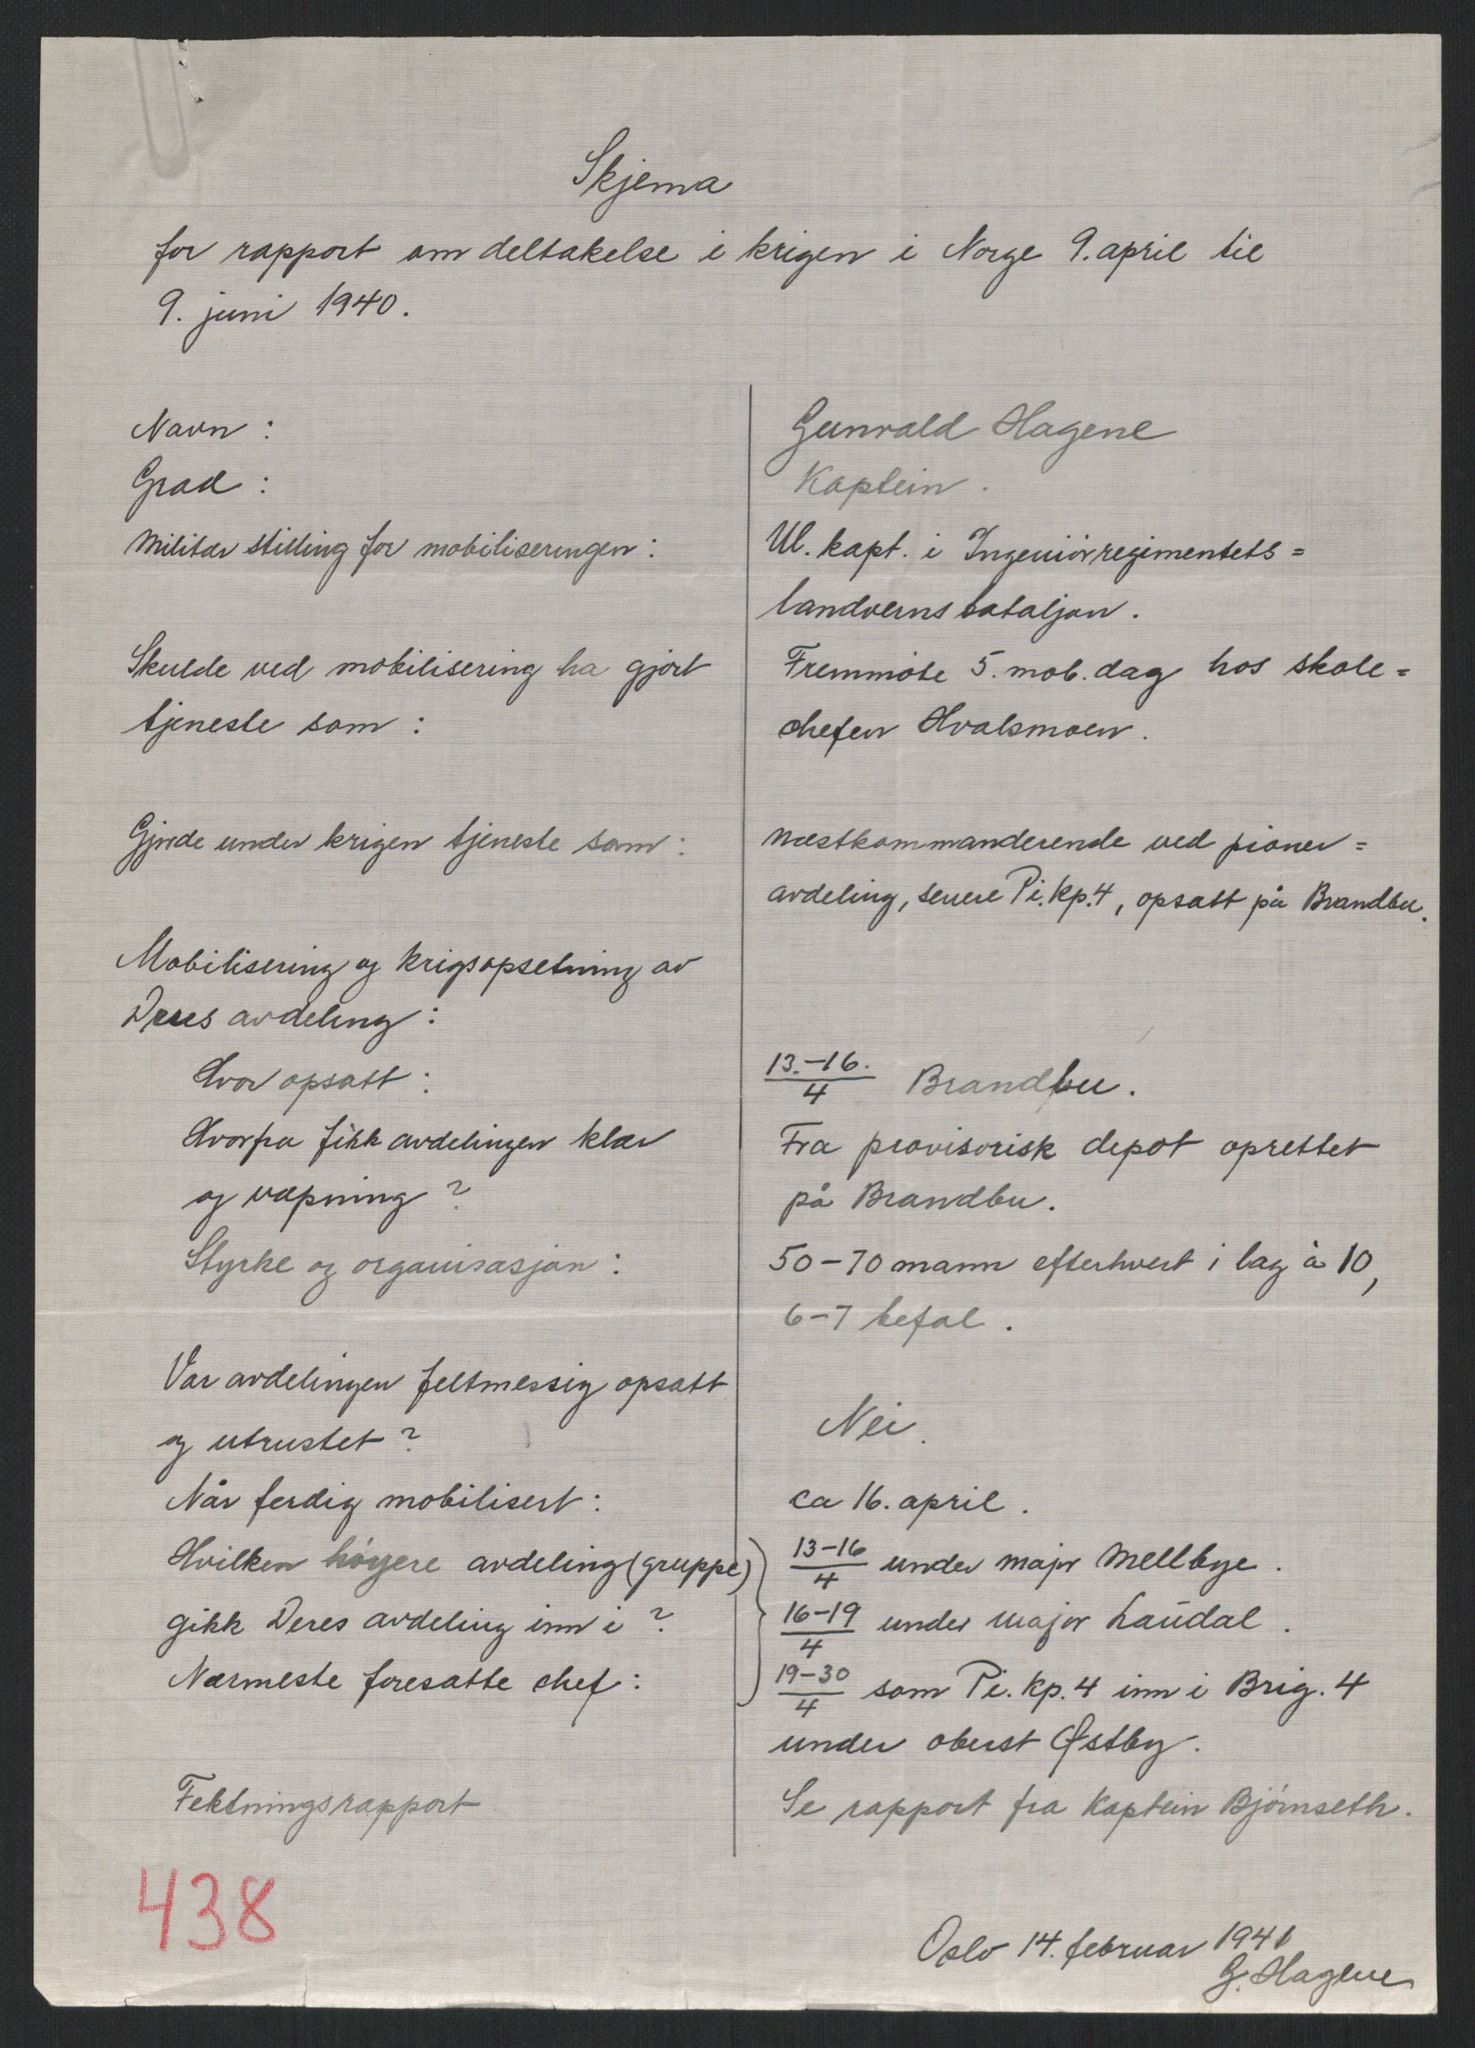 Skjema
for rapport om deltakelse i krigen i Norge 9. april til
9. juni 1940.
Navn : Gunvald Hagene
Grad : Kaptein.
Militær stilling før mobiliseringen : Ul. kapt. i Ingeniörregimentets=
landvernsbataljon.
Skulde ved mobilisering ha gjort Fremmöte 5. mob. dag hos skole=
tjeneste som : chefen Hvalsmoen.
Gjorde under krigen tjeneste som : Næstkommanderende ved pioner=
avdeling, senere Pi. kp. 4, opsatt på Brandbu.
Mobilisering og krigsopsetning av
Deres avdeling :
Hvor opsatt : 13.-16./4 Brandbu.
Hvorfra fikk avdelingen klær Fra provisorisk depot oprettet
og væpning ? på Brandbu.
Styrke og organisasjon : 50-70 mann efterhvert i lag à 10,
6-7 befal.
Var avdelingen feltmessig opsatt
og utrustet ? Nei.
Når ferdig mobilisert : ca 16. april.
Hvilken höyere avdeling (gruppe) 13-16/4 under major Mellbye.
gikk Deres avdeling inn i ? 16-19/4 under major Laudal.
Nærmeste foresatte chef : 19-30/4 som Pi. kp. 4 inn i Brig. 4
under oberst Østby.
Fektningsrapport Se rapport fra Kaptein Björnseth.
438
Oslo 14. februar 1941
G. Hagene